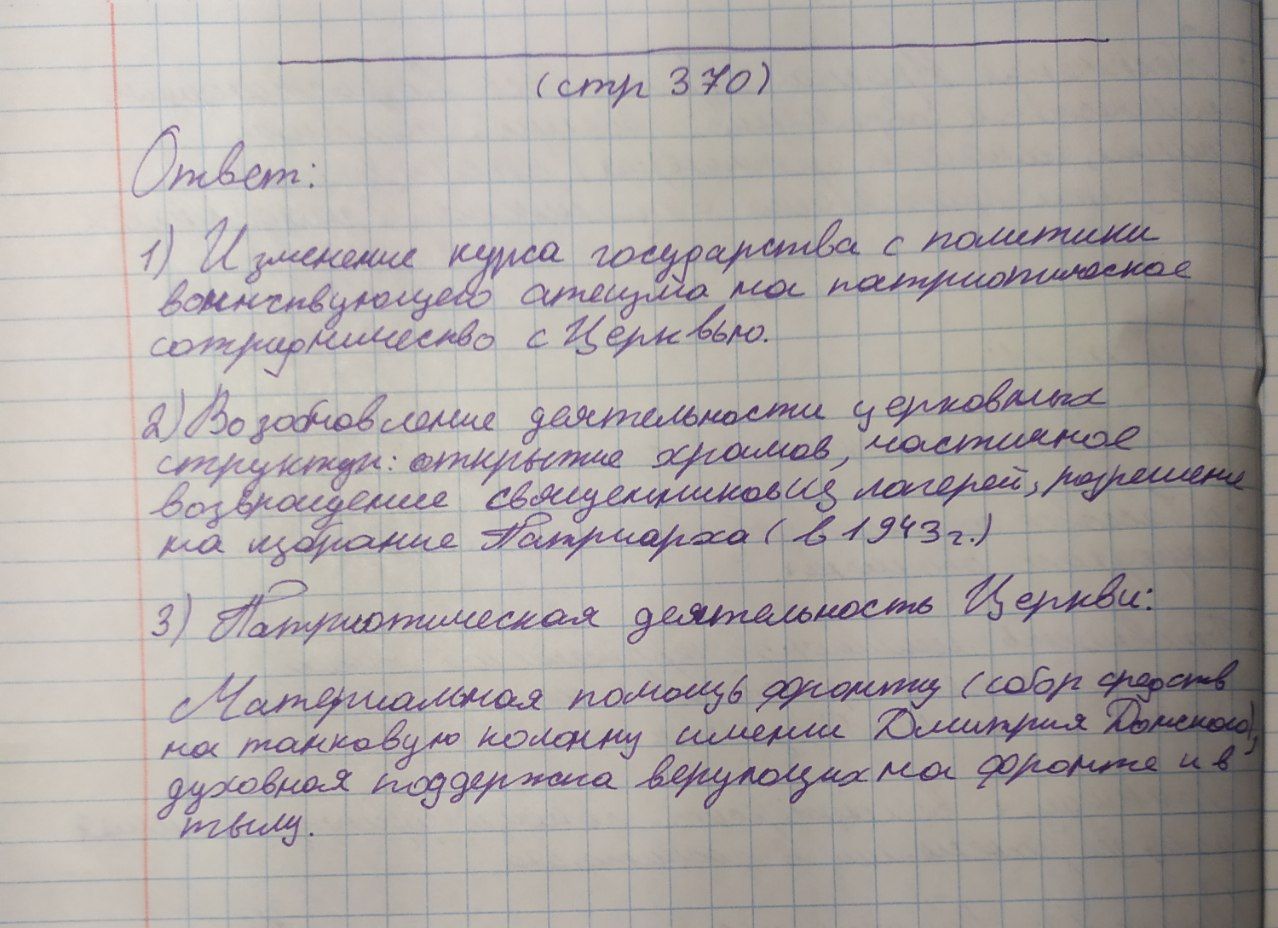 (стр 370)
Ответ:
1) Изменение курса государства с политики
воинствующего атеизма на патриотическое
сотрудничество с Церковью.
2) Возобновление деятельности церковных
структур: открытие храмов, частичное
возвращение священников из лагерей, разрешение
на избрание Патриарха (в 1943 г.)
3) Патриотическая деятельность Церкви:
Материальная помощь фронту (сбор средств
на танковую колонну имени Дмитрия Донского),
духовная поддержка верующих на фронте и в
тылу.